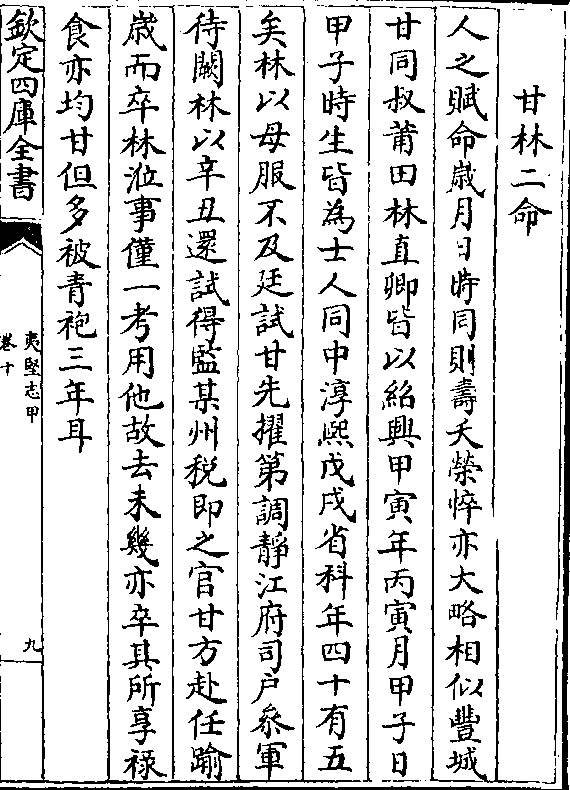 甘林二命
人之賦命歲月日時同則壽夭榮悴亦大略相似豐城
甘同叔莆田林直卿皆以紹興甲寅年丙寅月甲子日
甲子時生皆為士人同中淳熙戊戌省科年四十有五
矣林以母服不及廷試甘先擢第調靜江府司戶叅軍
待闕林以辛丑還試得監某州稅即之官甘方赴任踰
歲而卒林涖事僅一考用他故去未幾亦卒其所享祿
食亦均甘但多被青袍三年耳
欽定四庫全書
夷堅志甲
卷十
九